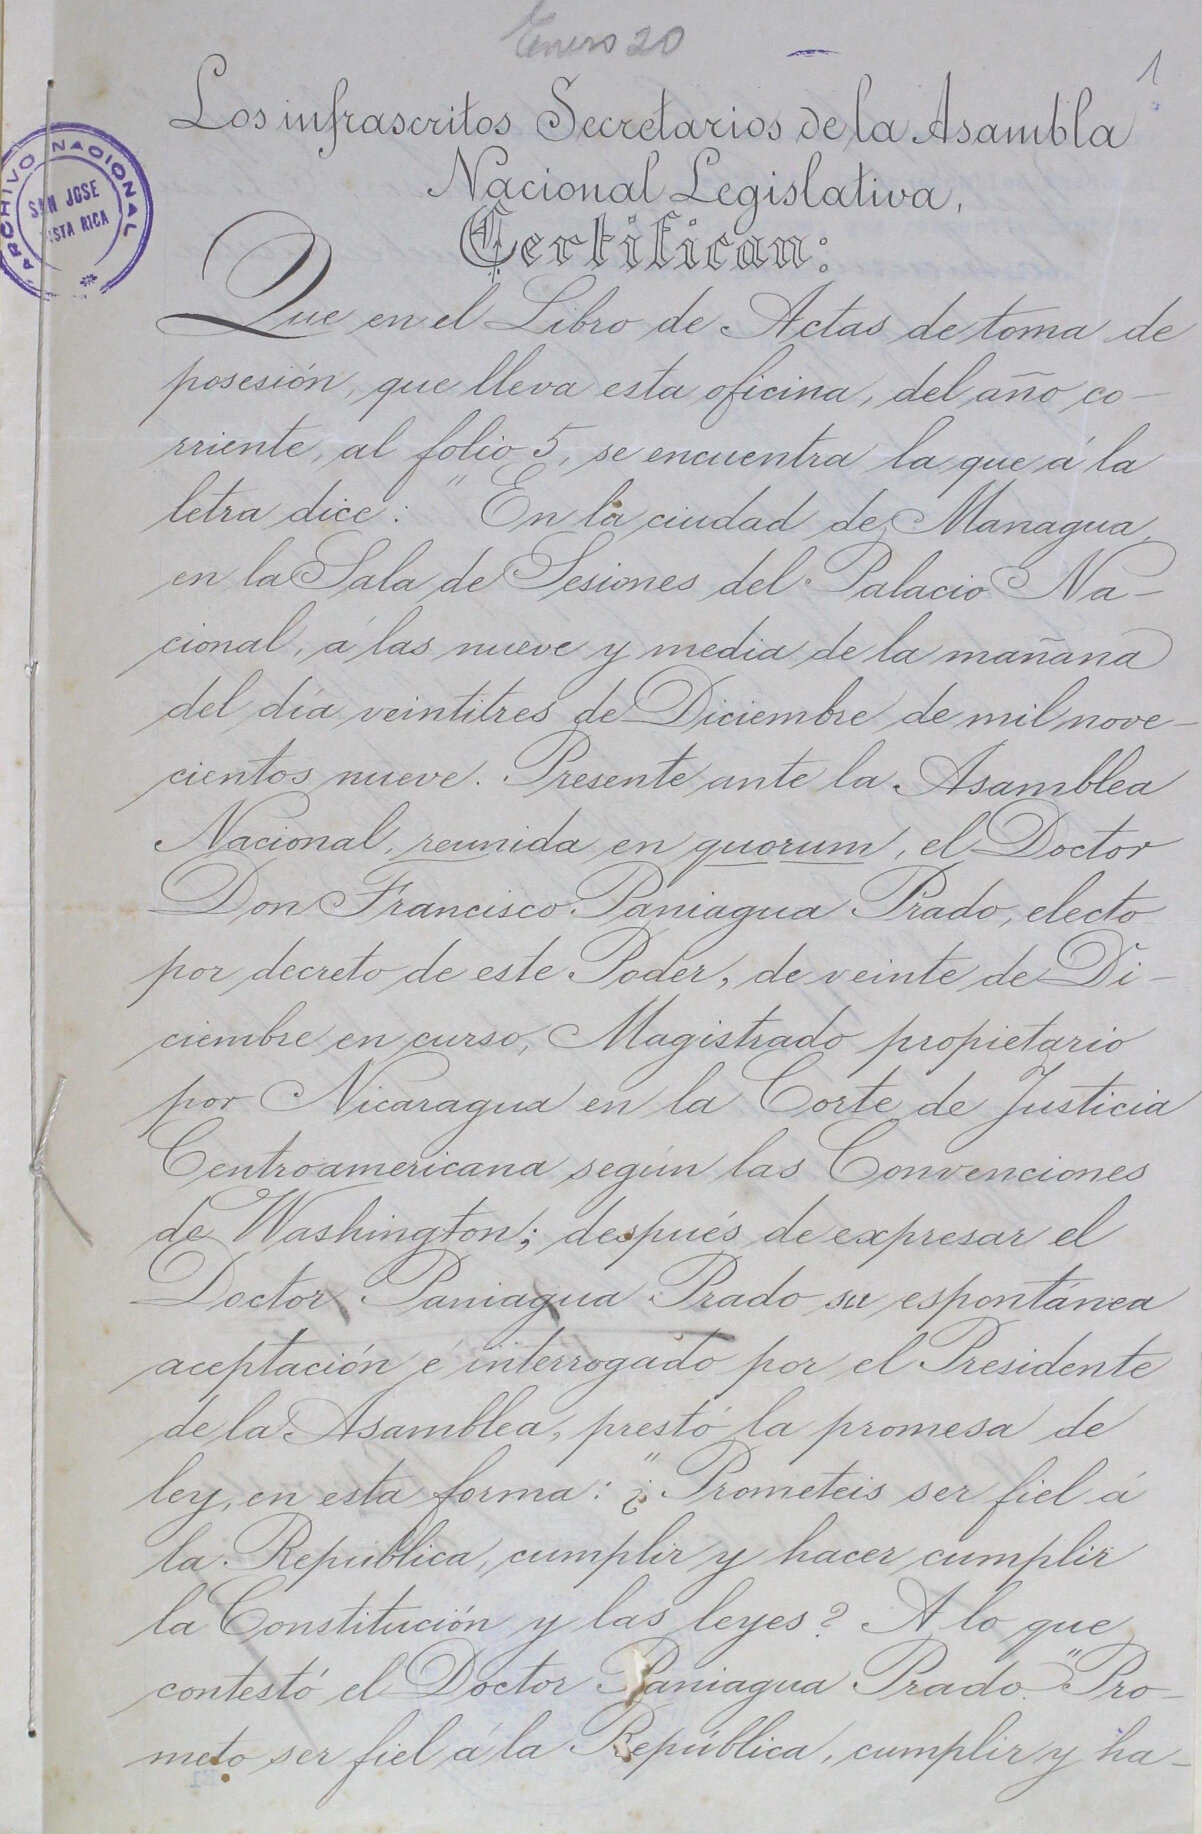 Enero 20
1
Los infrascritos Secretarios de la Asambla
Nacional Legislativa,
Certifican:
ARCHIVO NACIONAL
SAN JOSE
COSTA RICA
Que en el Libro de Actas de toma de
posesión, que lleva esta oficina, del año co-
rriente, al folio 5, se encuentra la que á la
letra dice: "En la ciudad de Managua,
en la Sala de Sesiones del Palacio Na-
cional, á las nueve y media de la mañana
del día veintitres de Diciembre de mil nove-
cientos nueve. Presente ante la Asamblea
Nacional, reunida en quorum, el Doctor
Don Francisco Paniagua Prado, electo
por decreto de este Poder, de veinte de Di-
ciembre en curso, Magistrado propietario
por Nicaragua en la Corte de Justicia
Centroamericana según las Convenciones
de Washington; después de expresar el
Doctor Paniagua Prado su espontánea
aceptación é interrogado por el Presidente
de la Asamblea, prestó la promesa de
ley, en esta forma: "¿Prometeis ser fiel á
la República, cumplir y hacer cumplir
la Constitución y las leyes? A lo que
contestó el Doctor Paniagua Prado. "Pro-
meto ser fiel á la República, cumplir y ha-